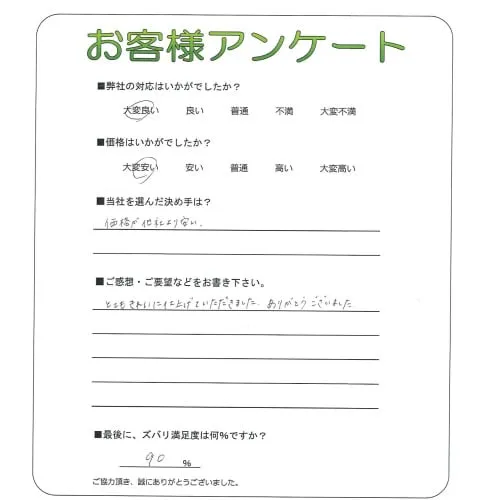 お客様アンケート
■弊社の対応はいかがでしたか?
大変良い 良い 普通 不満 大変不満
■価格はいかがでしたか?
大変安い 安い 普通 高い 大変高い
■当社を選んだ決め手は?
価格が他社より安い.
■ご感想・ご要望などをお書き下さい。
とてもきれいに仕上げていただきました. ありがとうございました.
■最後に、ズバリ満足度は何%ですか?
90 %
ご協力頂き、誠にありがとうございました。